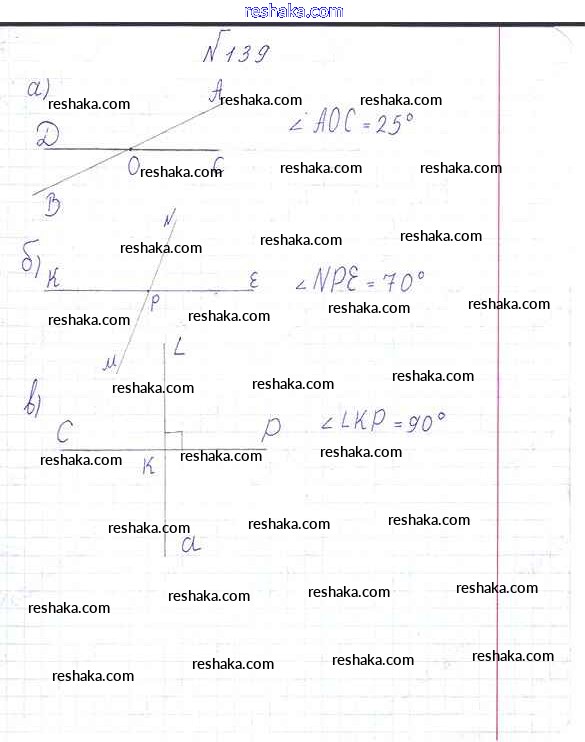 reshaka.com
№139
а)
reshaka.com
A
reshaka.com
reshaka.com
D
∠AOC = 25°
O
reshaka.com
C
reshaka.com
reshaka.com
B
N
reshaka.com
reshaka.com
reshaka.com
б)
K
P
E
∠NPE = 70°
reshaka.com
reshaka.com
reshaka.com
reshaka.com
M
L
reshaka.com
reshaka.com
reshaka.com
в)
C
P
∠LKP = 90°
reshaka.com
K
reshaka.com
reshaka.com
reshaka.com
reshaka.com
reshaka.com
a
reshaka.com
reshaka.com
reshaka.com
reshaka.com
reshaka.com
reshaka.com
reshaka.com
reshaka.com